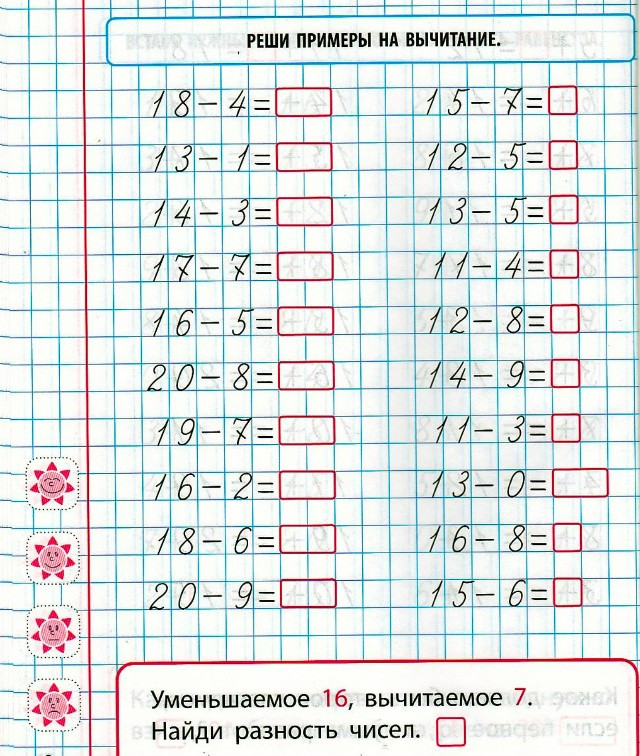 РЕШИ ПРИМЕРЫ НА ВЫЧИТАНИЕ.
18-4=
15-7=
13-1=
12-5=
14-3=
13-5=
17-7=
11-4=
16-5=
12-8=
20-8=
14-9=
19-7=
11-3=
16-2=
13-0=
18-6=
16-8=
20-9=
15-6=
Уменьшаемое 16, вычитаемое 7.
Найди разность чисел.